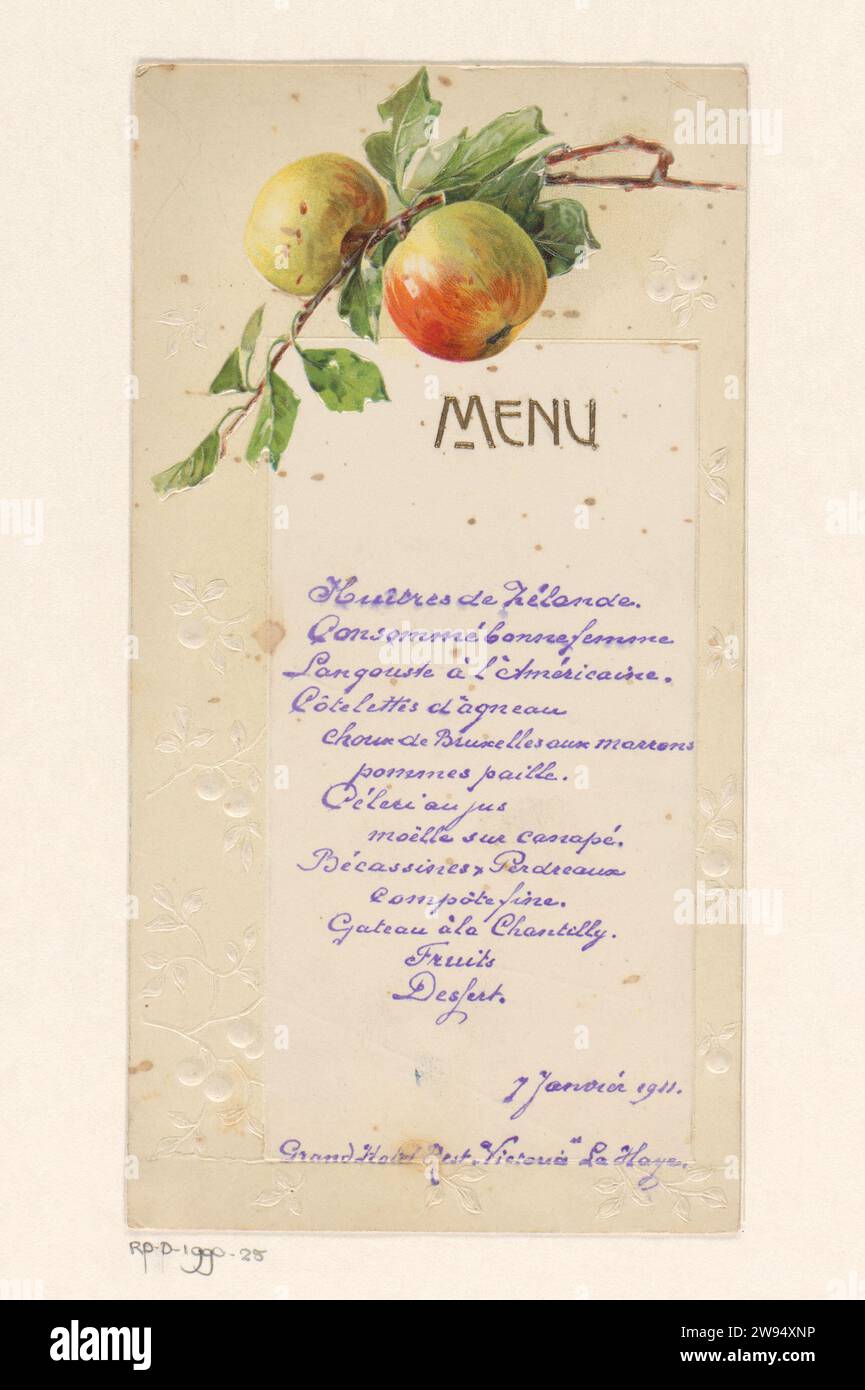 MENU
Huîtres de Zélande.
Consommé bonne femme
Langouste à l'Américaine.
Côtelettes d'agneau
choux de Bruxelles aux marrons
pommes paille.
Céleri au jus
moëlle sur canapé.
Bécassines & Perdreaux
compôte fine.
Gateau à la Chantilly.
Fruits
Dessert.
7 Janvier 1911.
Grand Hotel Rest. „Victoria" La Haye.
RP-D-1990-25
alamy
alamy
Image ID: 2W94XNP
www.alamy.com